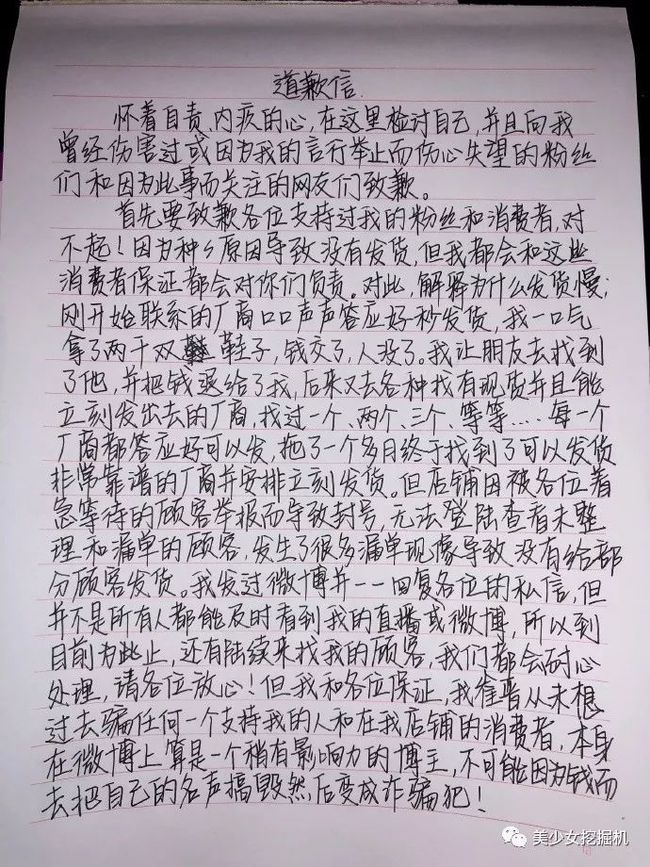 道歉信.
怀着自责、内疚的心,在这里检讨自己,并且向我
曾经伤害过或因为我的言行举止而伤心失望的粉丝
们和因为此事而关注的网友们致歉。
首先要致歉各位支持过我的粉丝和消费者,对
不起!因为种々原因导致没有发货,但我都会和这些
消费者保证都会对你们负责。对此,解释为什么发货慢;
刚开始联系的厂商口口声声答应好秒发货,我一口气
拿了两千双鞋子,钱交了,人没了。我让朋友去找到
了他,并把钱退给了我,后来又去各种找有现货并且能
立刻发出去的厂商,找过一个、两个、三个、等等....每一个
厂商都答应好可以发,拖了一个多月终于找到了可以发货
非常靠谱的厂商并安排立刻发货。但店铺因被各位着
急等待的顾客举报而导致封号,无法登陆查看未整
理和漏单的顾客,发生了很多漏单现像导致没有给部
分顾客发货。我发过微博并一一回复各位的私信,但
并不是所有人都能及时看到我的直播或微博,所以到
目前为此止,还有陆续来找我的顾客,我们都会耐心
处理,请各位放心!但我和各位保证,我崔晋从未想
过去骗任何一个支持我的人和在我店铺的消费者,本身
在微博上算是一个稍有影响力的博主,不可能因为钱而
去把自己的名声搞毁然后变成诈骗犯!
美少女挖掘机